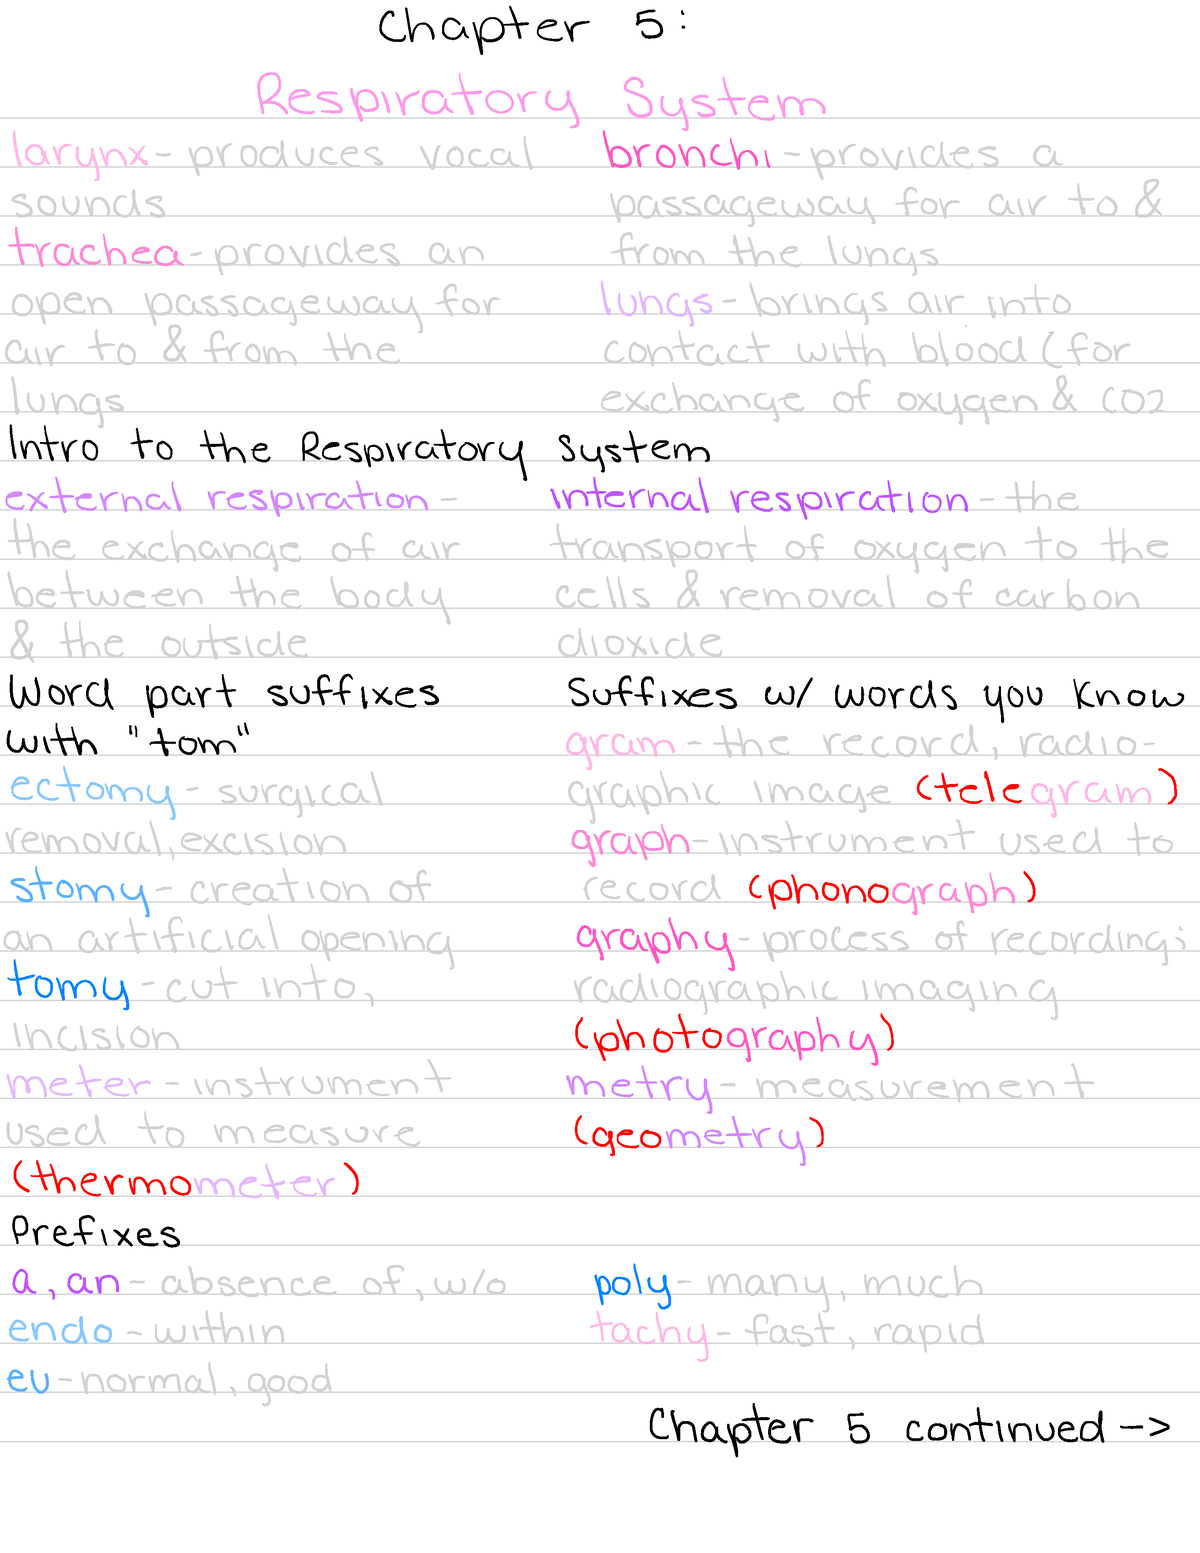 Chapter 5:
Respiratory System
larynx- produces vocal
sounds
trachea- provides an
open passageway for
air to & from the
lungs
bronchi - provides a
passageway for air to &
from the lungs
lungs - brings air into
contact with blood (for
exchange of oxygen & CO2
Intro to the Respiratory System
external respiration -
the exchange of air
between the body
& the outside
internal respiration - the
transport of oxygen to the
cells & removal of carbon
dioxide
Word part suffixes
with "tom"
ectomy - surgical
removal, excision
stomy - creation of
an artificial opening
tomy - cut into,
incision
meter - instrument
used to measure
(thermometer)
Suffixes w/ words you know
gram - the record, radio-
graphic image (telegram)
graph- instrument used to
record (phonograph)
graphy- process of recording;
radiographic imaging
(photography)
metry - measurement
(geometry)
Prefixes
a, an - absence of, w/o
endo - within
eu - normal, good
poly - many, much
tachy - fast, rapid
Chapter 5 continued ->